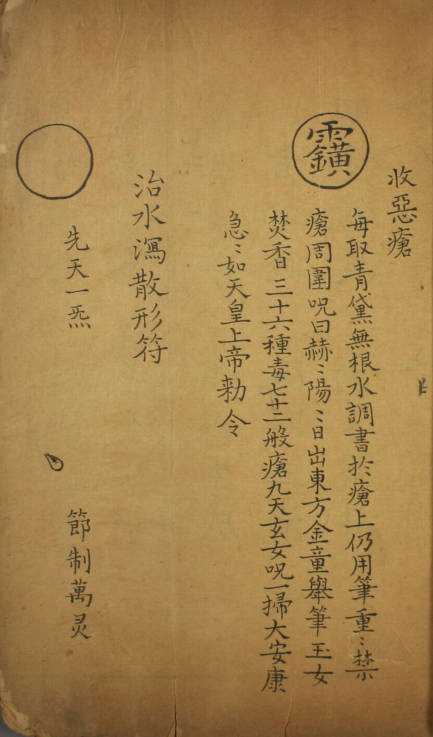 收惡瘡
每取青黛無根水調書於瘡上仍用筆重〻禁
瘡周圍咒曰赫〻陽〻日出東方金童舉筆玉女
焚香三十六種毒七十二般瘡九天玄女咒一掃大安康
急〻如天皇上帝勅令
治水瀉散形符
先天一炁
節制萬灵